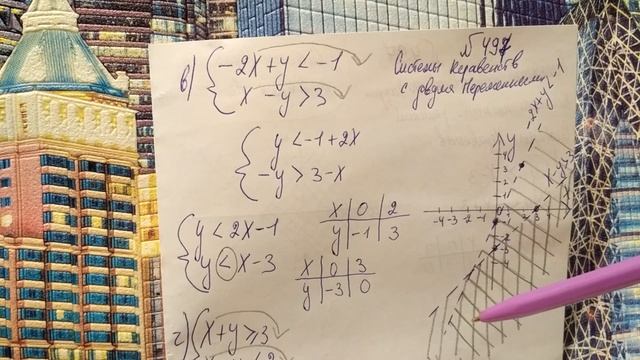 № 497
Системы неравенств
с двумя переменными
в) { -2x + y < -1
x - y > 3
{ y < -1 + 2x
-y > 3 - x
{ y < 2x - 1
y < x - 3
x | 0 | 2
y | -1 | 3
x | 0 | 3
y | -3 | 0
y
-2x+y<-1
x-y>3
-4 -3 -2 -1 0
г) { x + y ≥ 3